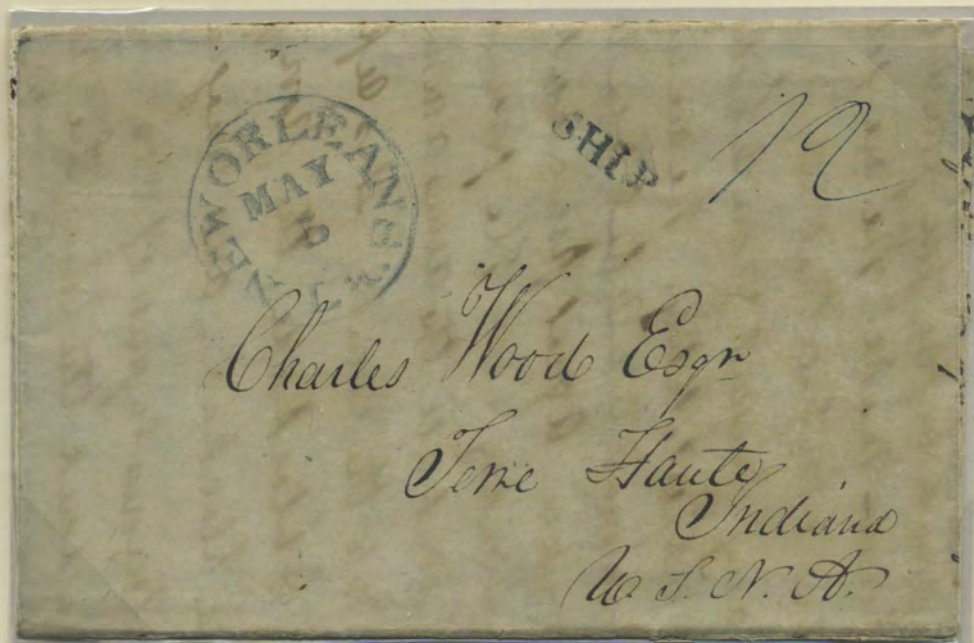 NEW ORLEANS
MAY
5
La.
SHIP
12
Charles Wood Esqr
Terre Haute
Indiana
U. S. N. A.